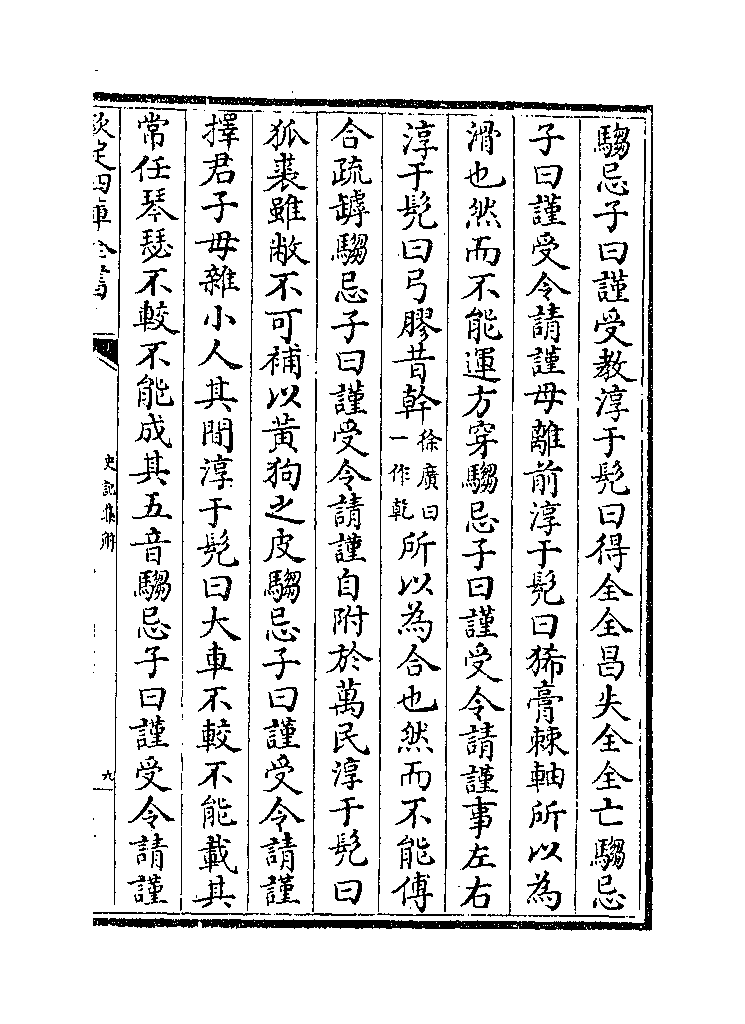 騶忌子曰謹受教淳于髠曰得全全昌失全全亡騶忌
子曰謹受令請謹毋離前淳于髠曰狶膏棘軸所以為
滑也然而不能運方穿騶忌子曰謹受令請謹事左右
淳于髠曰弓膠昔幹徐廣曰一作乾所以為合也然而不能傅
合疏罅騶忌子曰謹受令請謹自附於萬民淳于髠曰
狐裘雖敝不可補以黃狗之皮騶忌子曰謹受令請謹
擇君子毋雜小人其間淳于髠曰大車不較不能載其
常任琴瑟不較不能成其五音騶忌子曰謹受令請謹
欽定四庫全書
史記集解
九